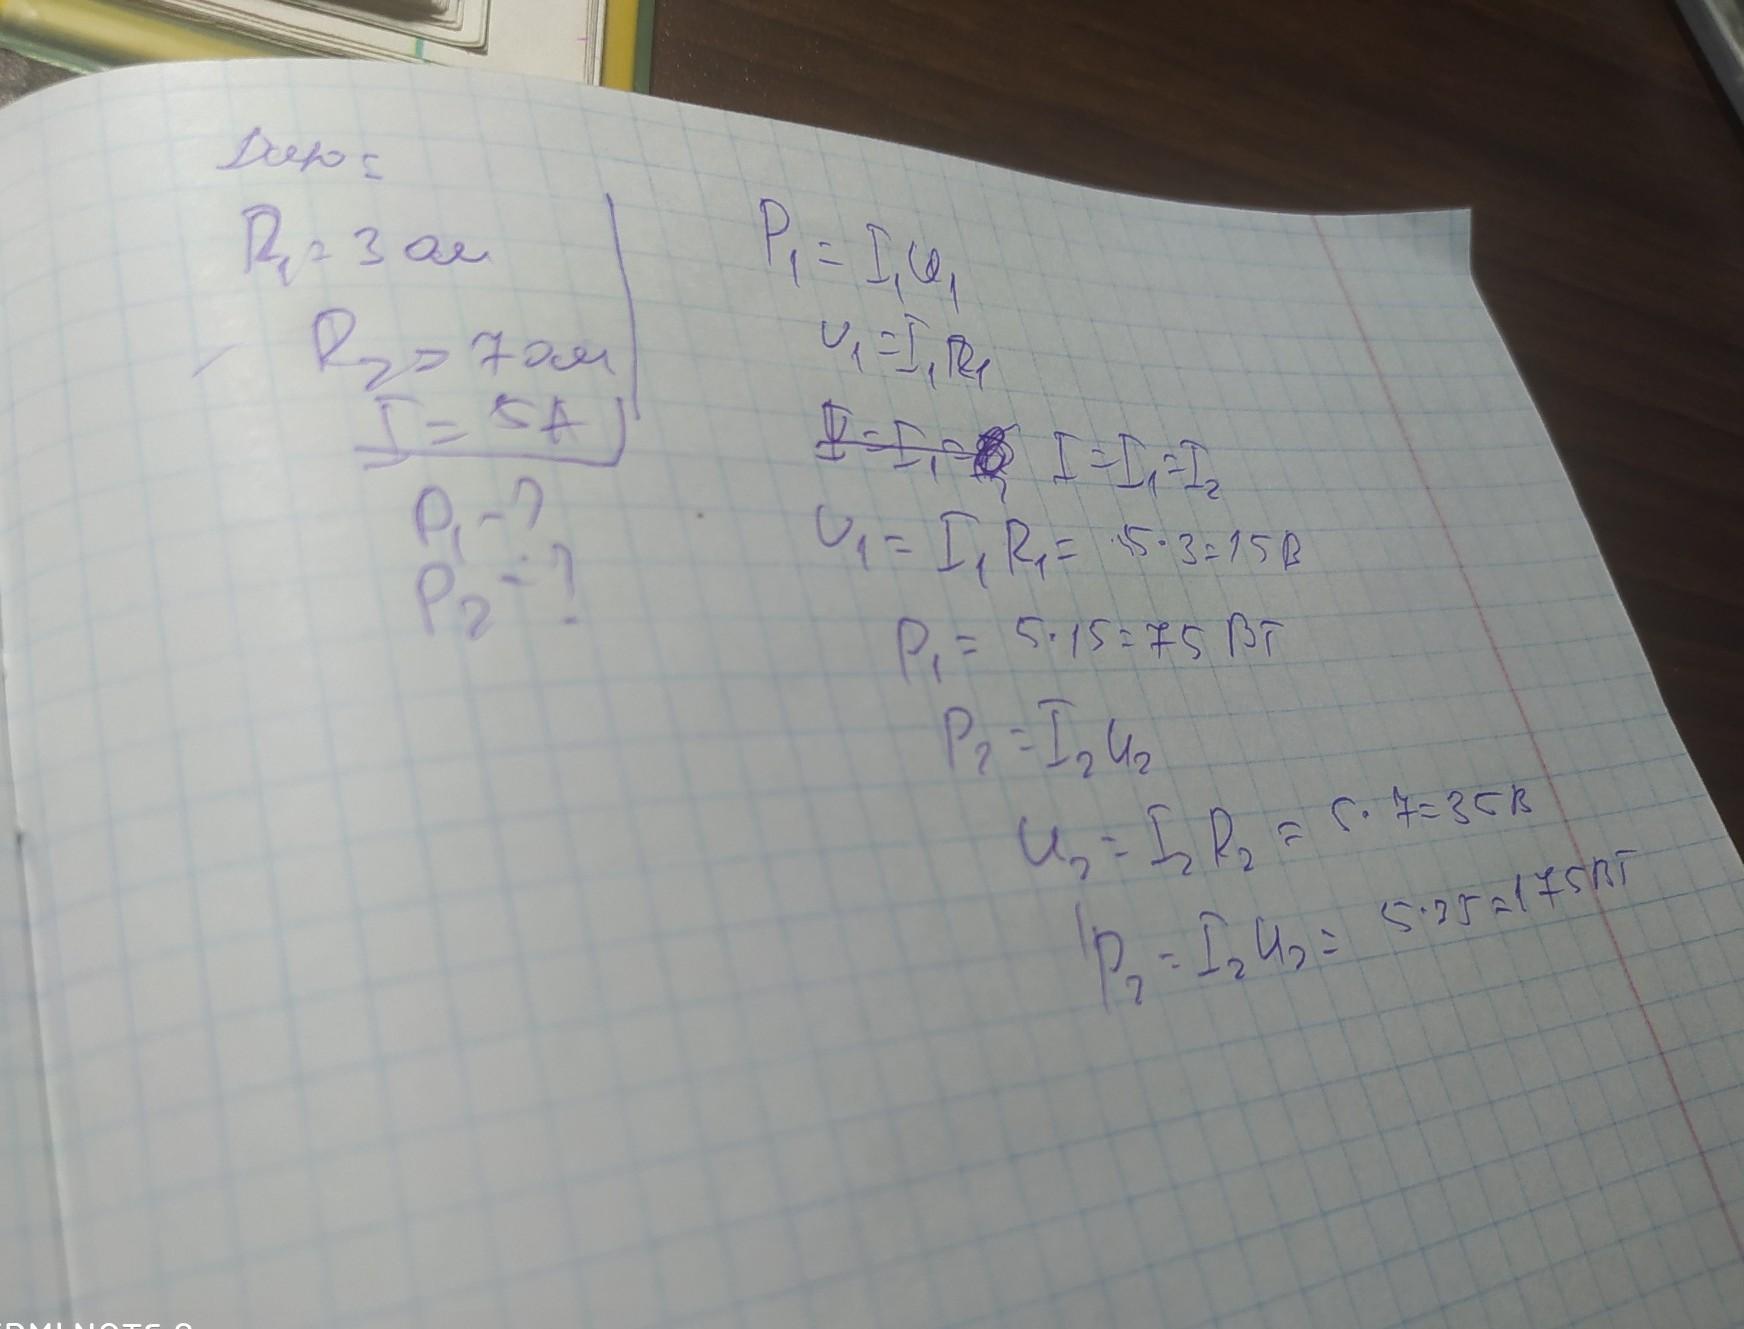 Дано:
R₁ = 3 ом
R₂ = 7 ом
I = 5А
P₁ - ?
P₂ - ?
P₁ = I₁U₁
U₁ = I₁R₁
I = I₁ = I₂
U₁ = I₁R₁ = 5·3=15В
P₁ = 5·15=75 ВТ
P₂ = I₂U₂
U₂ = I₂R₂ = 5·7=35В
P₂ = I₂U₂ = 5·35=175ВТ